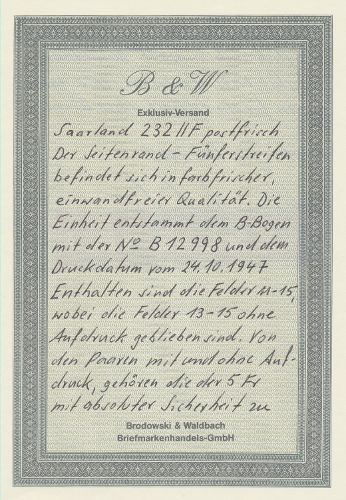 B & W
Exklusiv-Versand
Saarland 232 II F postfrisch
Der Seitenrand - Fünferstreifen
befindet sich in farbfrischer,
einwandfreier Qualität. Die
Einheit entstammt dem B-Bogen
mit der No B 12998 und dem
Druckdatum vom 24.10.1947
Enthalten sind die Felder 11-15,
wobei die Felder 13-15 ohne
Aufdruck geblieben sind. Von
den Paaren mit und ohne Auf-
druck, gehören die der 5 Fr
mit absoluter Sicherheit zu
Brodowski & Waldbach
Briefmarkenhandels-GmbH